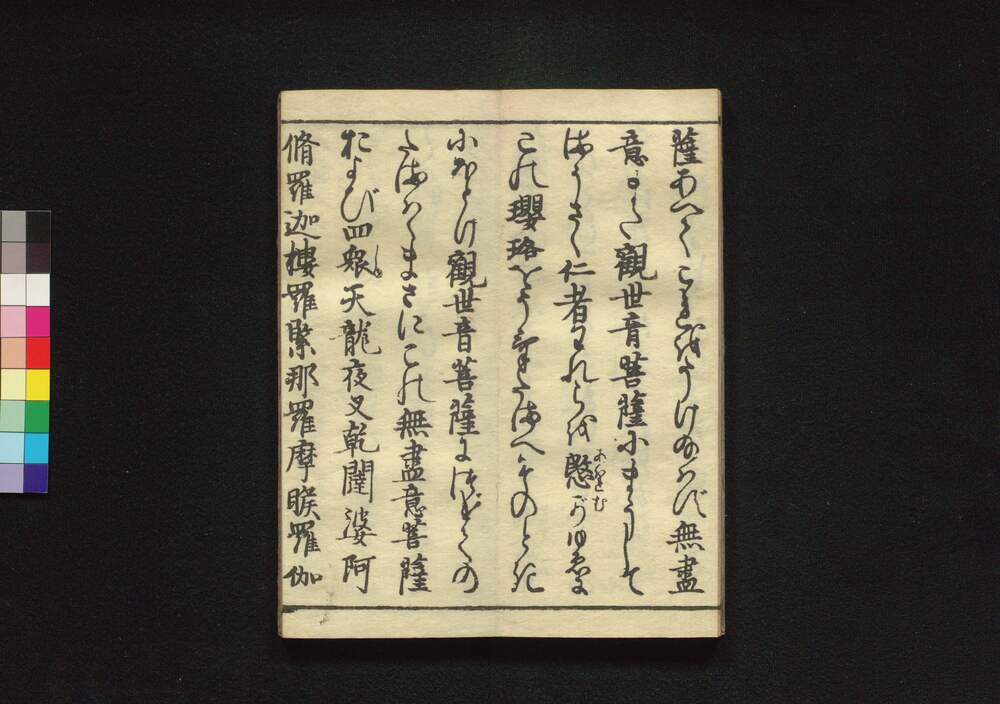 薩あへてこれをうけ給はず無盡
意また觀世音菩薩にまうして
まうさく仁者われらを愍がゆゑに
あはれむ
この瓔珞をうけたまへそのとき
にほとけ觀世音菩薩につげての
たまはくまさにこの無盡意菩薩
および四衆天龍夜叉乾闥婆阿
しゆ
脩羅迦樓羅緊那羅摩睺羅伽